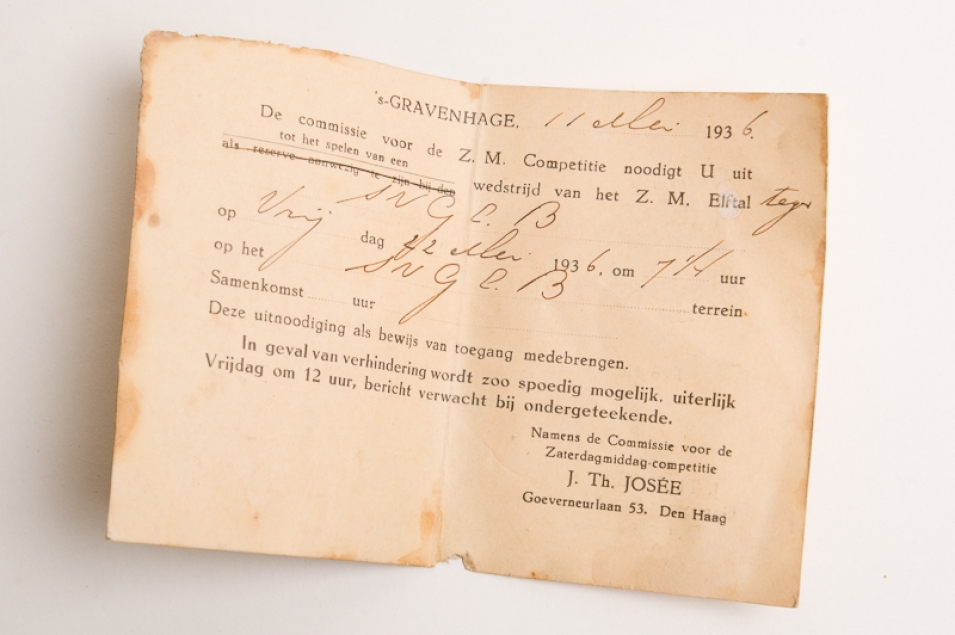 's-GRAVENHAGE. 11 Mei 1936.
De commissie voor de Z. M. Competitie noodigt U uit
tot het spelen van een
als reserve aanwezig te zijn bij den wedstrijd van het Z. M. Elftal tegen
S V G E B
op Vrij dag 22 Mei 1936. om 7 uur
op het S V G E B terrein.
Samenkomst ...... uur
Deze uitnoodiging als bewijs van toegang medebrengen.
In geval van verhindering wordt zoo spoedig mogelijk, uiterlijk
Vrijdag om 12 uur, bericht verwacht bij ondergeteekende.
Namens de Commissie voor de
Zaterdagmiddag-competitie
J. Th. JOSÉE
Goeverneurlaan 53. Den Haag